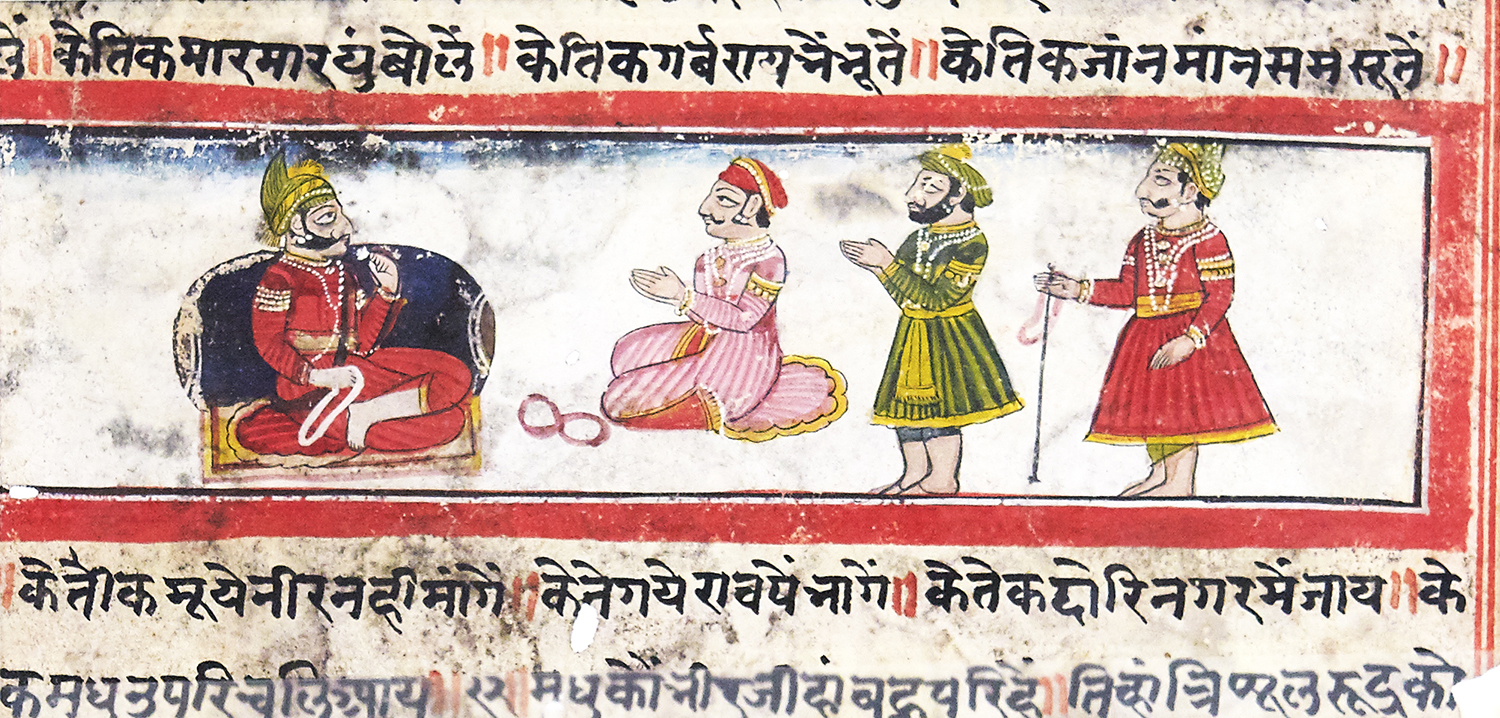 ॥ केतिक मार मार युं बोलें ॥ केतिक गर्ब राय नें भूतें ॥ केतिक जांन मांन सम सूतें ॥
॥ केतीक मूये नीर नही मांगें ॥ केते गये राव पें भागें ॥ केतेक दोरि नगर में जाय ॥ के
क मधु उपरि चलि आय ॥ २२ ॥ मधु कों बहु परिहें ॥ तिहां त्रि रूद्र को